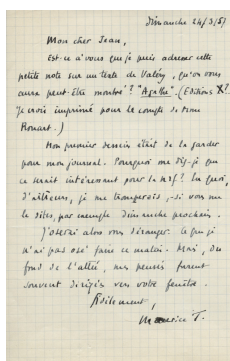 Dimanche 24/3/57
Mon cher Jean,
Est-ce à vous que je puis adresser cette
petite note sur un texte de Valéry, qu'on vous
aura peut-être montré? "Agathe". (Editions X?
Je crois imprimé pour le compte de
Rouart.)
Mon premier dessein était de la garder
pour mon journal. Pourquoi me dis-je que
ce serait intéressant pour la nrf? En quoi,
d'ailleurs, je me tromperais, - si vous me
le dites, par exemple dimanche prochain.
J'oserai alors vous déranger. Ce que je
n'ai pas osé faire ce matin. Mais, du
fond de l'allée, mes pensées furent
souvent dirigées vers votre fenêtre.
Fidèlement,
Maurice T.